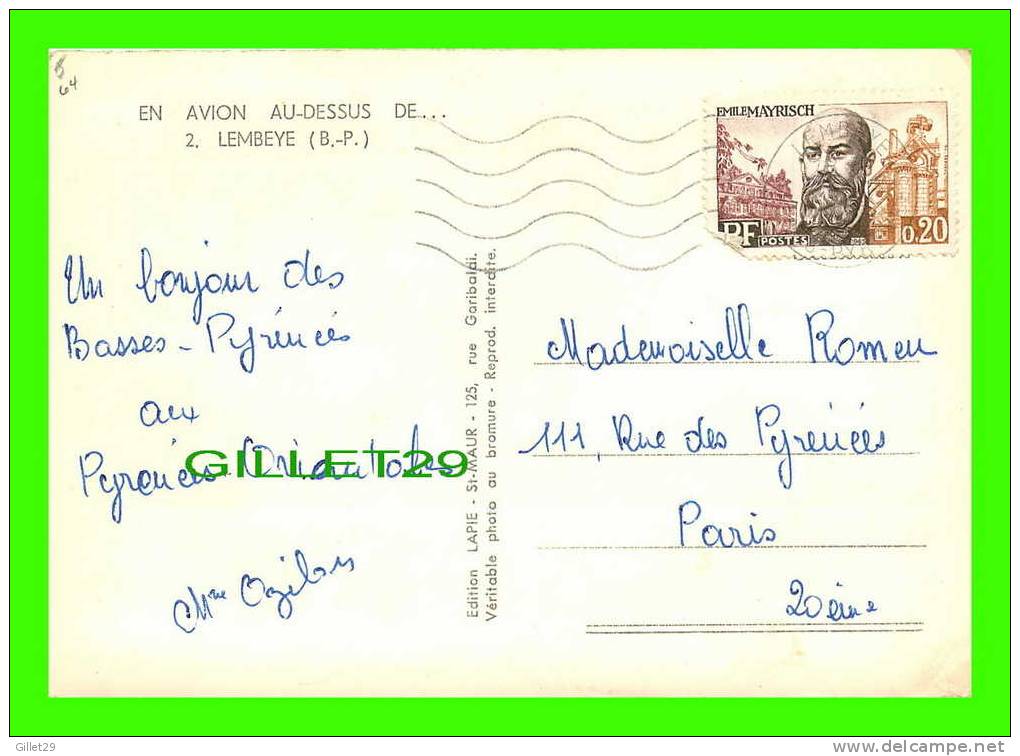 5
64
EN AVION AU-DESSUS DE...
2. LEMBEYE (B.-P.)
EMILE MAYRISCH
RF POSTES 0,20
Un bonjour des
Basses-Pyrénées
aux
Pyrénées Orientales
GILLET29
Mme
Edition LAPIE - St-MAUR - 125, rue Garibaldi.
Véritable photo au bromure - Reprod. interdite.
Mademoiselle Romeu
111, Rue des Pyrénées
Paris
20ème
Gillet29
www.delcampe.net